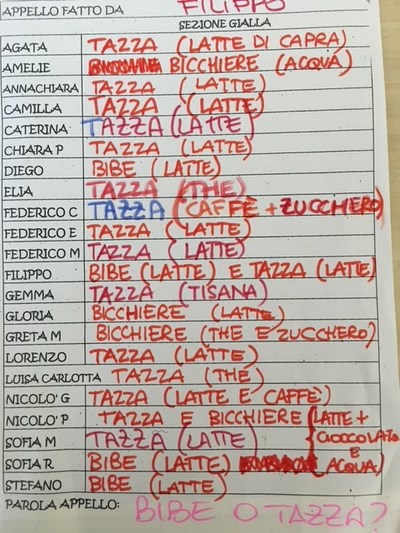 APPELLO FATTO DA FILIPPO
SEZIONE GIALLA
AGATA TAZZA (LATTE DI CAPRA)
AMELIE BICCHIERE (ACQUA)
ANNACHIARA TAZZA (LATTE)
CAMILLA TAZZA (LATTE)
CATERINA TAZZA (LATTE)
CHIARA P TAZZA (LATTE)
DIEGO BIBE (LATTE)
ELIA TAZZA (THE)
FEDERICO C TAZZA (CAFFÈ + ZUCCHERO)
FEDERICO E TAZZA (LATTE)
FEDERICO M TAZZA (LATTE)
FILIPPO BIBE (LATTE) E TAZZA (LATTE)
GEMMA TAZZA (TISANA)
GLORIA BICCHIERE (LATTE)
GRETA M BICCHIERE (THE E ZUCCHERO)
LORENZO TAZZA (LATTE)
LUISA CARLOTTA TAZZA (THE)
NICOLO' G TAZZA (LATTE E CAFFÈ)
NICOLO' P TAZZA E BICCHIERE (LATTE + CIOCCOLATO E ACQUA)
SOFIA M TAZZA (LATTE)
SOFIA R BIBE (LATTE)
STEFANO BIBE (LATTE)
PAROLA APPELLO: BIBE O TAZZA?